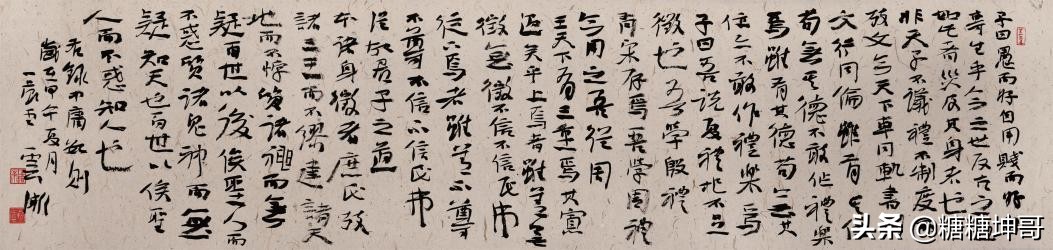 子曰愚而好自用賤而好
專生乎今之世反古之道
如此者災及其身者也
非天子不議禮不制度
考文今天下車同軌書
文行同倫雖有其位
苟無其德不敢作禮樂
焉雖有其德苟無其
位亦不敢作禮樂焉
子曰吾說夏禮杞不足
徵也吾學殷禮
有宋存焉吾學周禮
今用之吾從周
王天下有三重焉其寡
過矣乎上焉者雖善無
徵無徵不信不信民弗
從下焉者雖善不尊
不尊不信不信民弗
從故君子之道
本諸身徵者庶民考
諸三王而不繆建諸天
地而不悖質諸神而無
疑百世以後俟聖人而
不惑質諸鬼神而無
疑知天也百世以俟聖
人而不惑知人也
右錄中庸數則
歲在甲午夏月
頭条 @糖糖坤哥